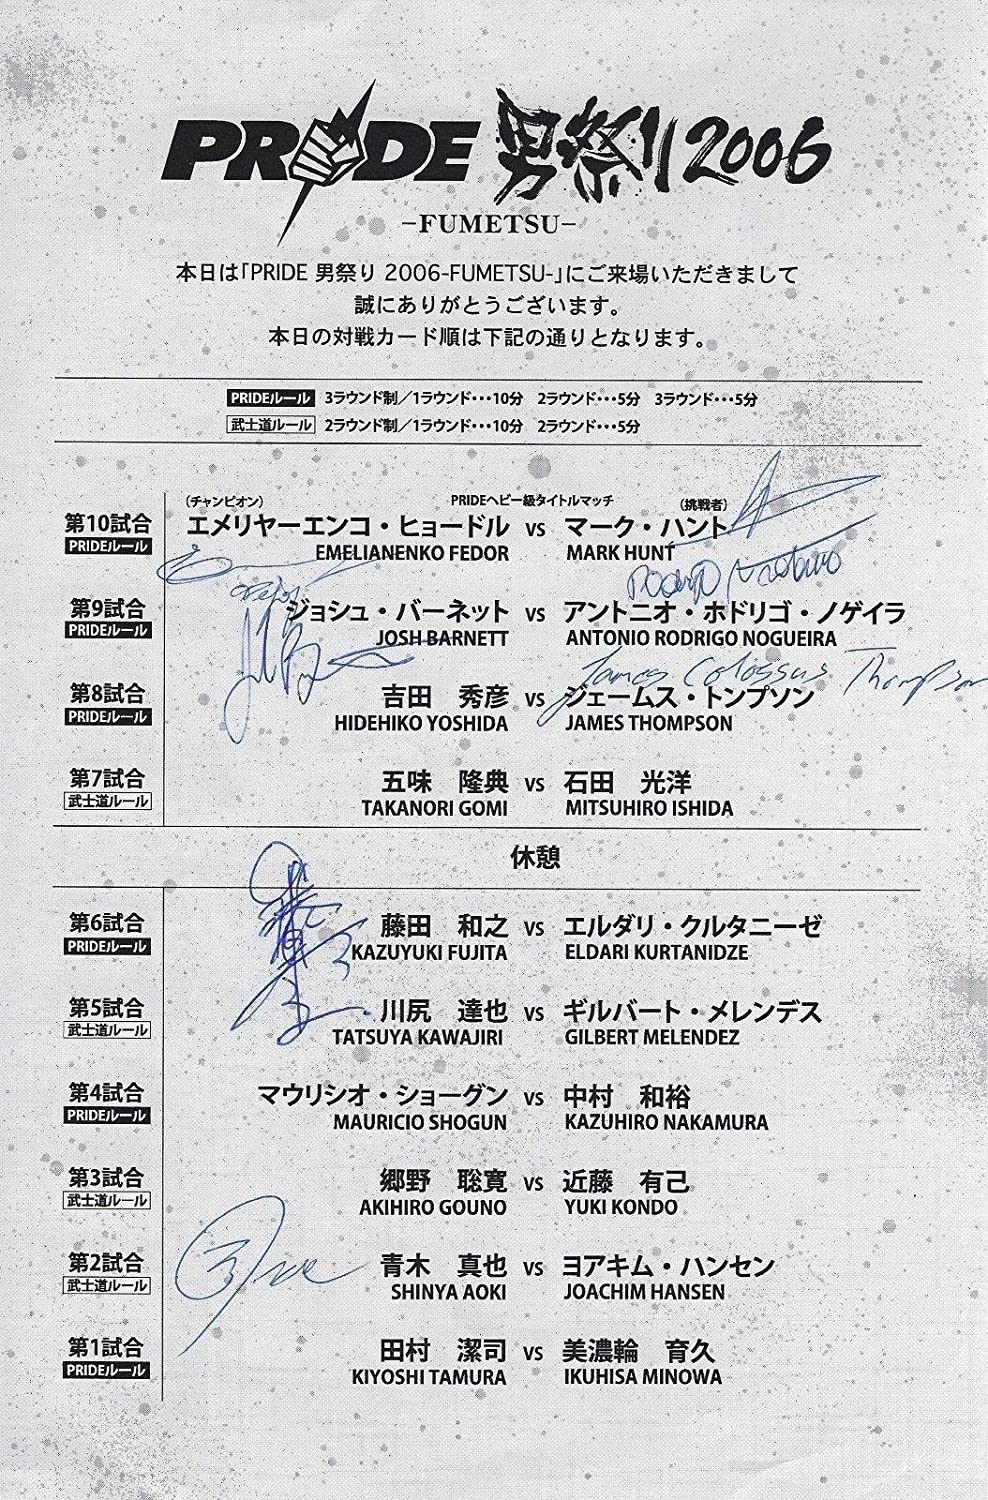 PRIDE 男祭り 2006
-FUMETSU-
本日は「PRIDE 男祭り 2006-FUMETSU-」にご来場いただきまして
誠にありがとうございます。
本日の対戦カード順は下記の通りとなります。
PRIDEルール 3ラウンド制／1ラウンド・・・10分 2ラウンド・・・5分 3ラウンド・・・5分
武士道ルール 2ラウンド制／1ラウンド・・・10分 2ラウンド・・・5分
(チャンピオン) PRIDEヘビー級タイトルマッチ (挑戦者)
第10試合 エメリヤーエンコ・ヒョードル vs マーク・ハント
PRIDEルール EMELIANENKO FEDOR MARK HUNT
Rodrigo Nogueira
第9試合 ジョシュ・バーネット vs アントニオ・ホドリゴ・ノゲイラ
PRIDEルール JOSH BARNETT ANTONIO RODRIGO NOGUEIRA
James Colossus Thompson
第8試合 吉田 秀彦 vs ジェームス・トンプソン
PRIDEルール HIDEHIKO YOSHIDA JAMES THOMPSON
第7試合 五味 隆典 vs 石田 光洋
武士道ルール TAKANORI GOMI MITSUHIRO ISHIDA
休憩
第6試合 藤田 和之 vs エルダリ・クルタニーゼ
PRIDEルール KAZUYUKI FUJITA ELDARI KURTANIDZE
第5試合 川尻 達也 vs ギルバート・メレンデス
武士道ルール TATSUYA KAWAJIRI GILBERT MELENDEZ
第4試合 マウリシオ・ショーグン vs 中村 和裕
PRIDEルール MAURICIO SHOGUN KAZUHIRO NAKAMURA
第3試合 郷野 聡寛 vs 近藤 有己
武士道ルール AKIHIRO GOUNO YUKI KONDO
第2試合 青木 真也 vs ヨアキム・ハンセン
武士道ルール SHINYA AOKI JOACHIM HANSEN
第1試合 田村 潔司 vs 美濃輪 育久
PRIDEルール KIYOSHI TAMURA IKUHISA MINOWA